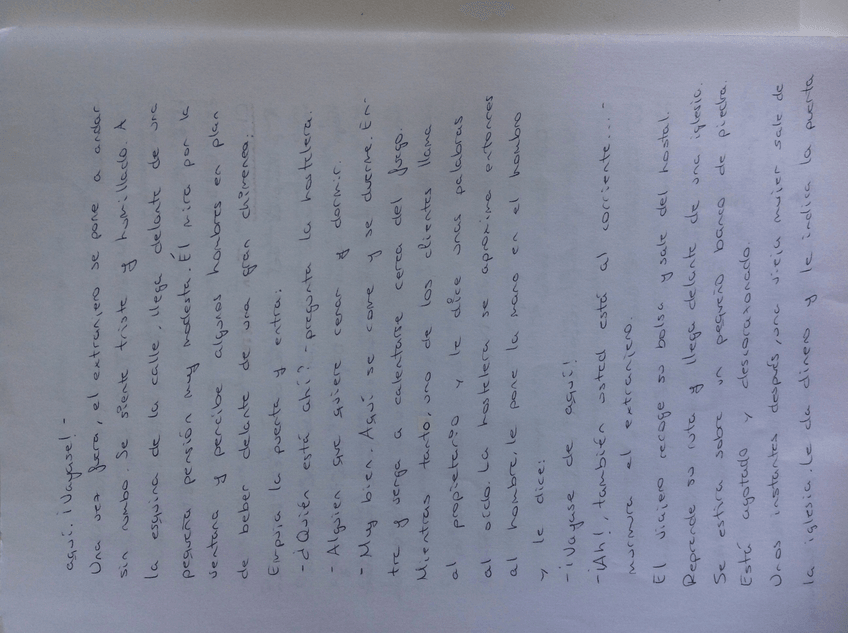 aquí. ¡Vayase! -
Una vez fuera, el extranjero se pone a andar
sin rumbo. Se siente triste y humillado. A
la esquina de la calle, llega delante de una
pequeña pensión muy modesta. Él mira por la
ventana y percibe algunos hombres en plan
de beber delante de una gran chimenea.
Empuja la puerta y entra:
- ¿Quién está ahí? - pregunta la hostelera.
- Alguien que quiere cenar y dormir.
- Muy bien. Aquí se come y se duerme. En-
tre y venga a calentarse cerca del fuego.
Mientras tanto, uno de los clientes llama
al propietario y le dice unas palabras
al oído. La hostelera se aproxima entonces
al hombre, le pone la mano en el hombro
y le dice:
- ¡Vayase de aquí!
- ¡Ah!, también usted está al corriente... -
murmura el extranjero.
El viajero recoge su bolsa y sale del hostal.
Reprende su ruta y llega delante de una iglesia.
Se estira sobre un pequeño banco de piedra.
Está agotado y descorazonado.
Unos instantes después, una vieja mujer sale de
la iglesia. Le da dinero y le indica la puerta